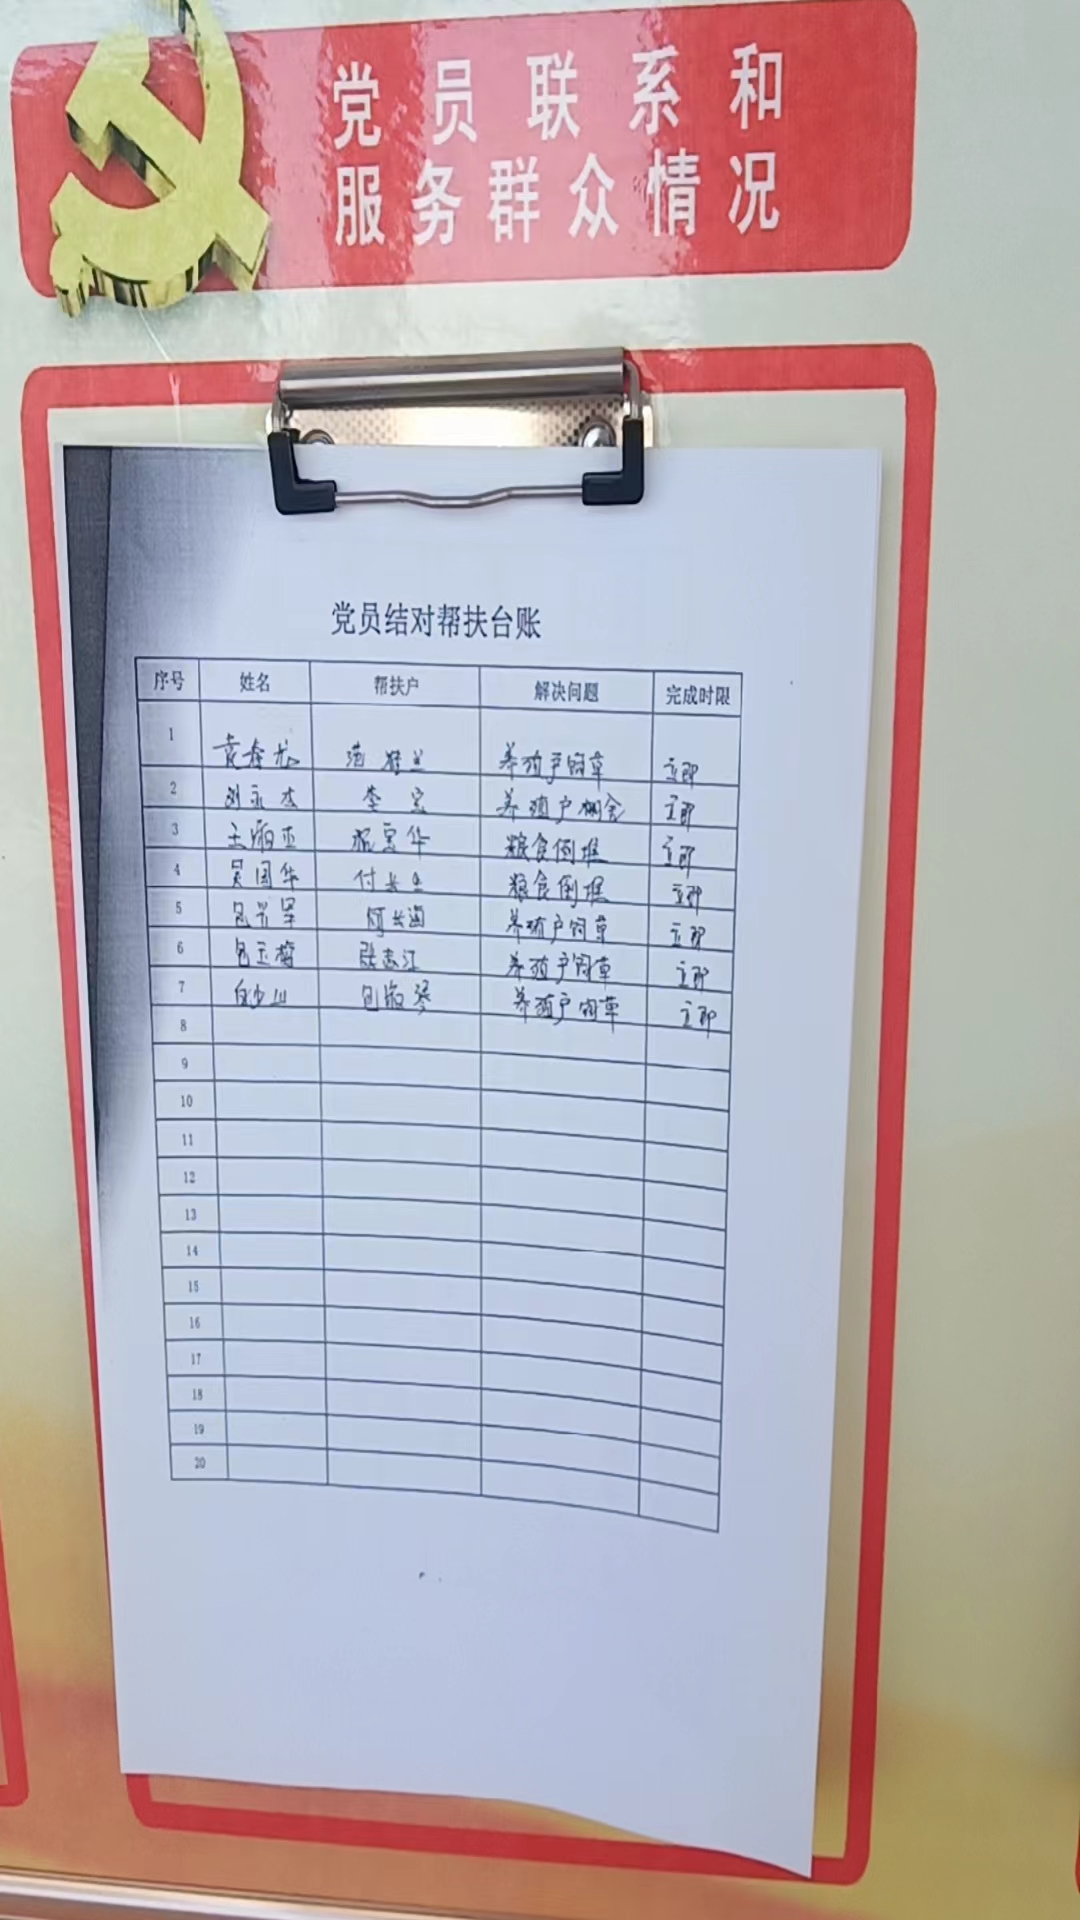 党员联系和
服务群众情况
党员结对帮扶台账
序号 姓名 帮扶户 解决问题 完成时限
1 养殖户饲草 立即
2 刘永杰 李宝 养殖户棚舍 立即
3 粮食倒堆 立即
4 吴国华 付长 粮食倒堆 立即
5 何长海 养殖户饲草 立即
6 包玉梅 张志江 养殖户饲草 立即
7 白少山 包敏琴 养殖户饲草 立即
8
9
10
11
12
13
14
15
16
17
18
19
20